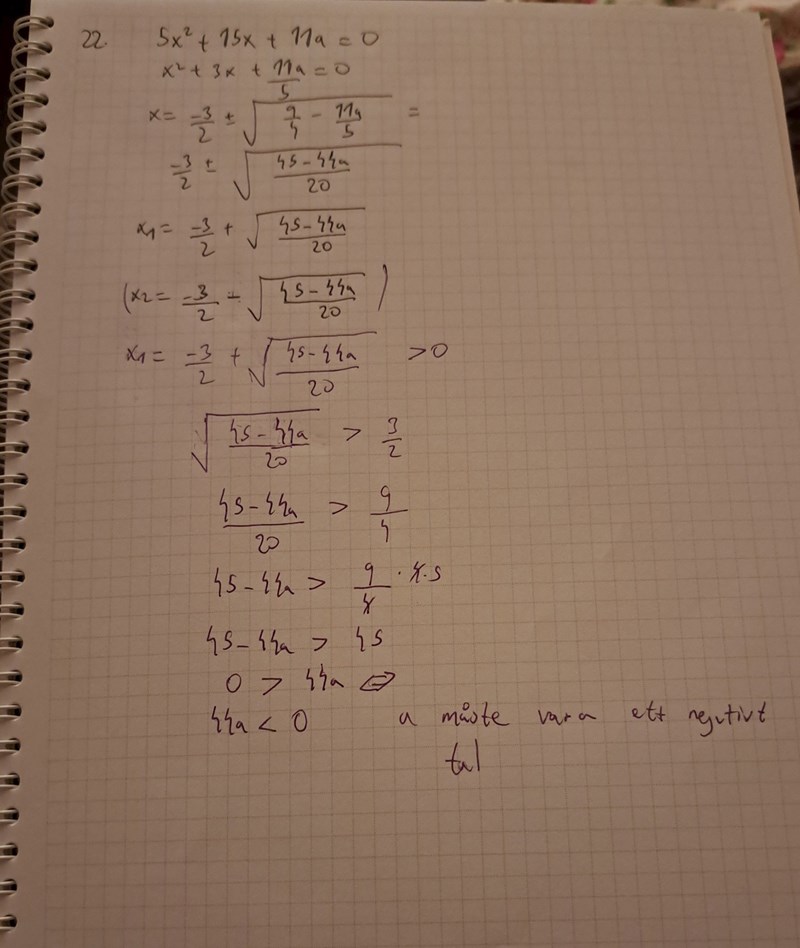 22. 5x² + 15x + 11a = 0
x² + 3x + 11a/5 = 0
x = -3/2 ± √(9/4 - 11a/5) =
-3/2 ± √((45-44a)/20)
x₁ = -3/2 + √((45-44a)/20)
(x₂ = -3/2 - √((45-44a)/20))
x₁ = -3/2 + √((45-44a)/20) > 0
√((45-44a)/20) > 3/2
(45-44a)/20 > 9/4
45-44a > 9/4 · 4·5
45-44a > 45
0 > 44a ⇔
44a < 0 a måste vara ett negativt
tal